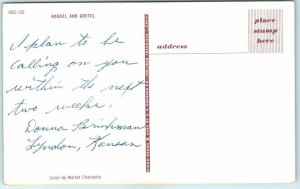 HSC-155
HANSEL AND GRETEL
place
stamp
here
address
I plan to be
calling on you
within the next
two weeks.
Donna Brinkman
Lyndon, Kansas
Color by Walter Chandoha